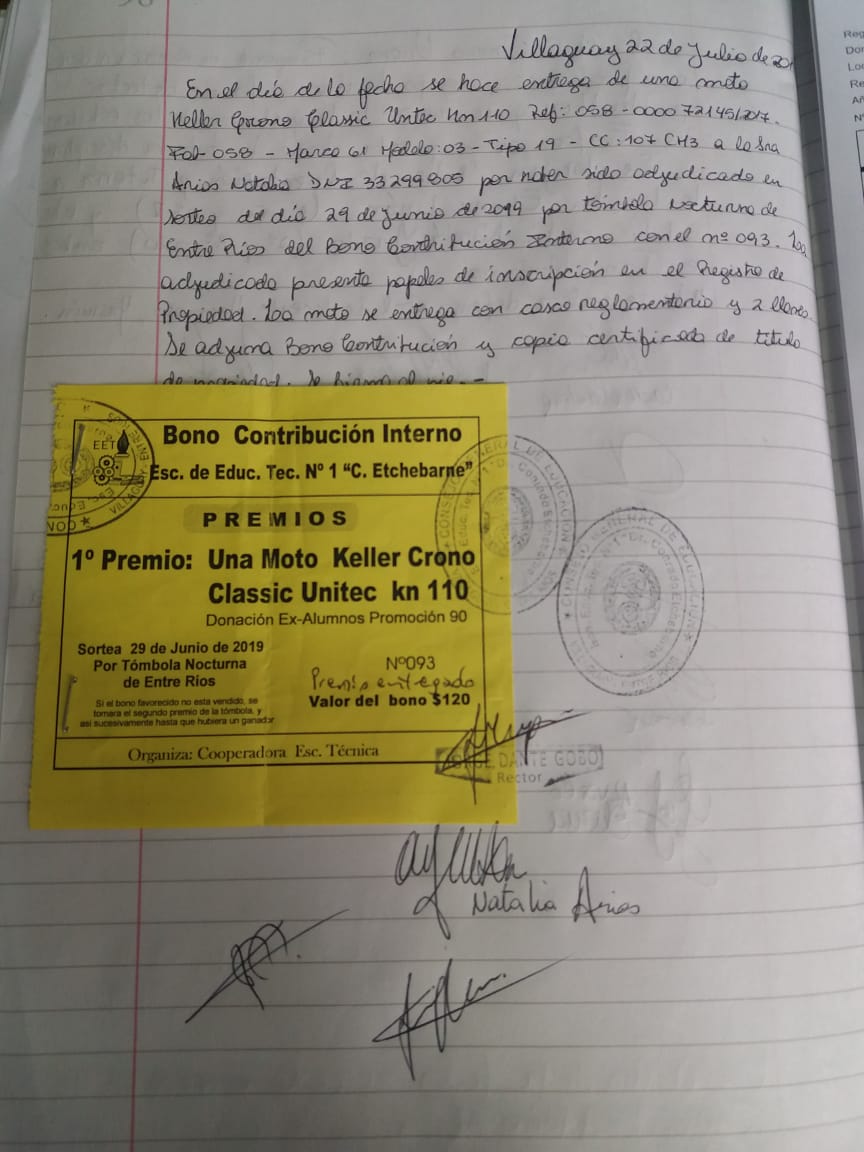 Villaguay 22 de Julio de 20
En el día de la fecha se hace entrega de una moto
Keller Crono Classic Unitec Kn 110 Ref: 058 - 0000 72145/2017.
Fab 058 - Marca 61 Modelo: 03 - Tipo 19 - CC: 107 CH3 a la Sra
Arios Natalia DNI 33299805 por haber sido adjudicada en
sorteo del día 29 de Junio de 2019 por tómbola nocturna de
Entre Ríos del Bono Contribución Interno con el nº 093. La
adjudicada presenta papeles de inscripción en el Registro de
Propiedad. La moto se entrega con casco reglamentario y 2 llaves.
Se adjunta Bono Contribución y copia certificada de título
EET
VILLAGUAY ENTRE RIOS
Bono Contribución Interno
Esc. de Educ. Tec. Nº 1 “C. Etchebarne”
PREMIOS
1º Premio: Una Moto Keller Crono
Classic Unitec kn 110
Donación Ex-Alumnos Promoción 90
Sortea 29 de Junio de 2019
Por Tómbola Nocturna
de Entre Rios
Si el bono favorecido no esta vendido, se
tomara el segundo premio de la tómbola, y
asi sucesivamente hasta que hubiera un ganador
Nº093
Premio entregado
Valor del bono $120
Organiza: Cooperadora Esc. Técnica
CONSEJO GENERAL DE EDUCACION
DANTE GOBO
Rector
Natalia Arios